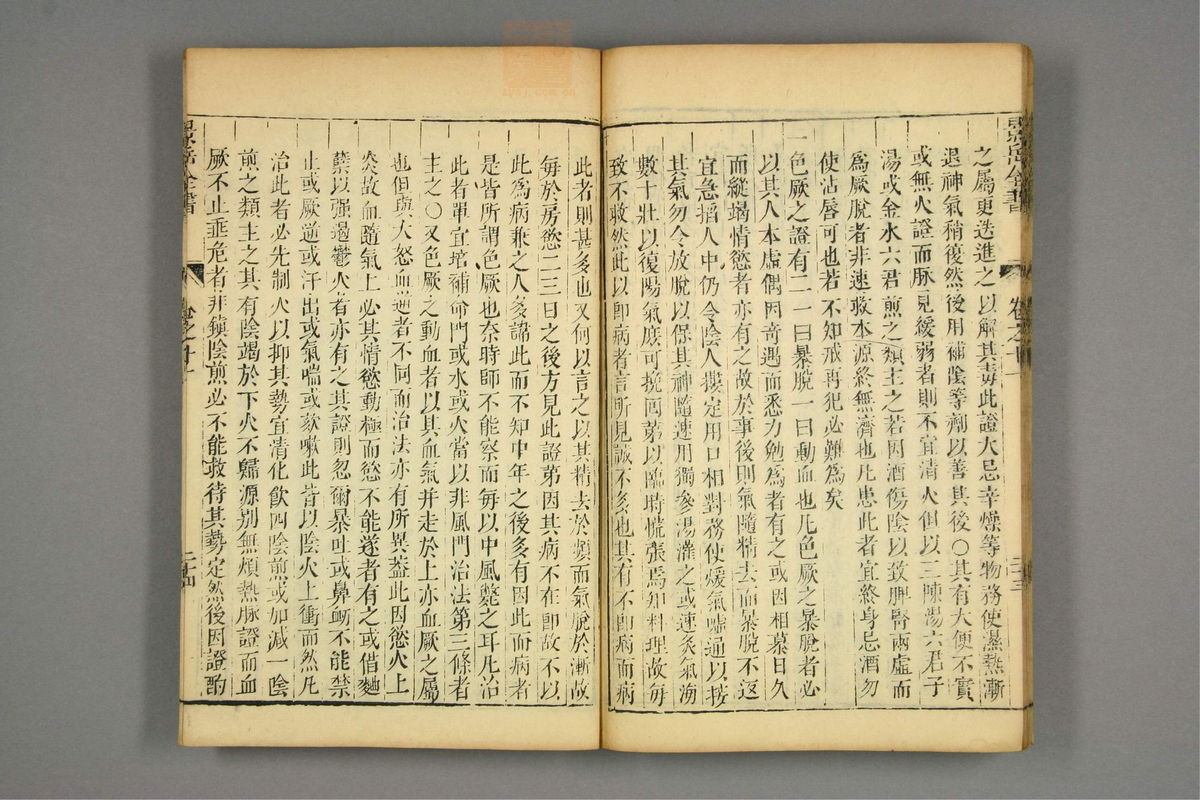 景岳全書 卷之十一 二十三
之屬更迭進之以解其毒此證大忌辛燥等物務使濕熱漸
退神氣稍復然後用補陰等劑以善其後○其有大便不實
或無火證而脉見緩弱者則不宜清火但以二陳湯六君子
湯或金水六君煎之類主之若因酒傷陰以致脾腎兩虛而
爲厥脫者非速救本源終無濟也凡患此者宜終身忌酒勿
使沾唇可也若不知戒再犯必難爲矣
一色厥之證有二一曰暴脫一曰動血也凡色厥之暴脫者必
以其人本虛偶因奇遇而悉力勉爲者有之或因相慕日久
而縱竭情慾者亦有之故於事後則氣隨精去而暴脫不返
宜急掐人中仍令陰人摟定用口相對務使煖氣嘘通以接
其氣勿令放脫以保其神隨速用獨參湯灌之或速灸氣海
數十壯以復陽氣庶可挽回第以臨時慌張焉知料理故每
致不救然此以即病者言所見誠不多也其有不即病而病
此者則甚多也又何以言之以其精去於頻而氣脫於漸故
每於房慾二三日之後方見此證第因其病不在即故不以
此爲病兼之人多諱此而不知中年之後多有因此而病者
是皆所謂色厥也奈時師不能察而每以中風斃之耳凡治
此者單宜培補命門或水或火當以非風門治法第三條者
主之○又色厥之動血者以其血氣并走於上亦血厥之屬
也但與大怒血逆者不同而治法亦有所異蓋此因慾火上
炎故血隨氣上必其情慾動極而慾不能遂者有之或借麯
蘖以强遏鬱火者亦有之其證則忽爾暴吐或鼻衄不能禁
止或厥逆或汗出或氣喘或欬嗽此皆以陰火上衝而然凡
治此者必先制火以抑其勢宜清化飲四陰煎或加減一陰
煎之類主之其有陰竭於下火不歸源别無煩熱脉證而血
厥不止垂危者非鎮陰煎必不能救待其勢定然後因證酌
景岳全書 卷之十一 二十四